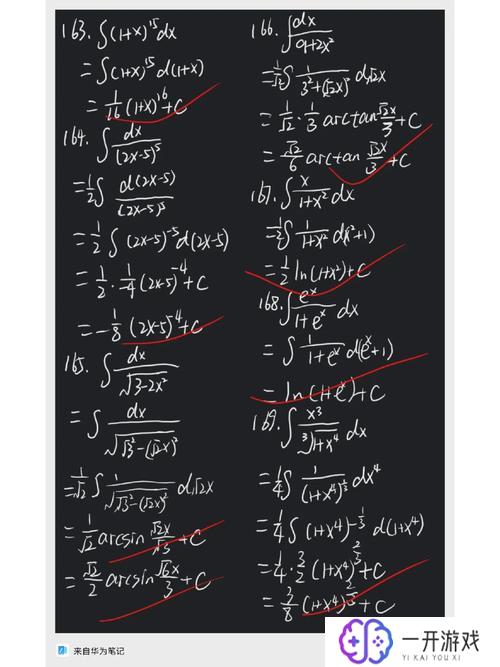 163. ∫(1+x)^15 dx
= ∫(1+x)^15 d(1+x)
= 1/16 (1+x)^16 + C
164. ∫ dx/(2x-5)^5
= 1/2 ∫ d(2x-5)/(2x-5)^5
= 1/2 ∫ (2x-5)^-5 d(2x-5)
= 1/2 · 1/-4 (2x-5)^-4 + C
= -1/8 (2x-5)^-4 + C
165. ∫ dx/√(3-2x²)
= ∫ dx/√(√3²-(√2x)²)
= 1/√2 ∫ 1/√(√3²-(√2x)²) d√2x
= 1/√2 arcsin √2x/√3 + C
= √2/2 arcsin √6x/3 + C
166. ∫ dx/(9+2x²)
= 1/√2 ∫ 1/(3²+(√2x)²) d√2x
= 1/√2 · 1/3 arctan √2x/3 + C
= √2/6 arctan √2x/3 + C
167. ∫ x/(1+x²) dx
= 1/2 ∫ 1/(1+x²) d(x²+1)
= 1/2 ln(1+x²) + C
168. ∫ e^x/(1+e^x) dx
= ∫ 1/(1+e^x) d(e^x+1)
= ln(1+e^x) + C
169. ∫ x³/∛(1+x⁴) dx
= 1/4 ∫ 1/(1+x⁴)^(1/3) dx⁴
= 1/4 ∫ (1+x⁴)^(-1/3) d(1+x⁴)
= 1/4 · 3/2 (1+x⁴)^(2/3) + C
= 3/8 (1+x⁴)^(2/3) + C
来自华为笔记
一开游戏
YI KAI YOU XI